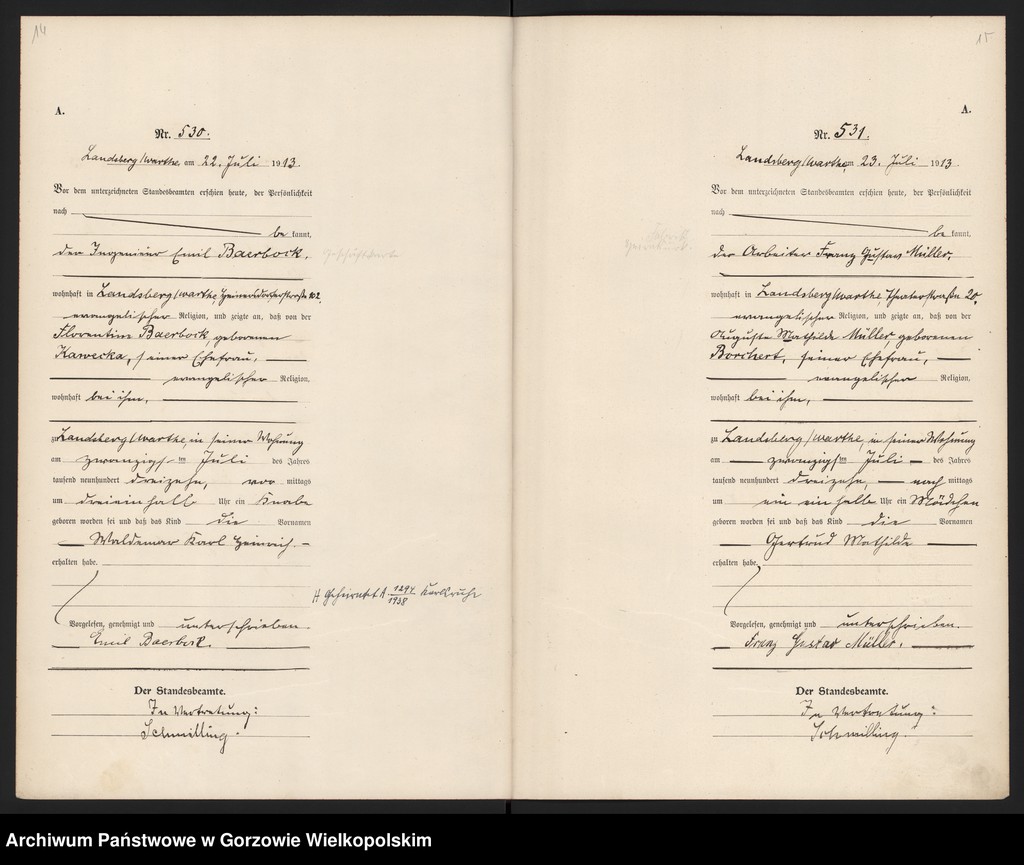 14
A.
Nr. 530.
Landsberg/Warthe, am 22. Juli 1913.
Vor dem unterzeichneten Standesbeamten erschien heute, der Persönlichkeit
nach
be kannt,
der Ingenieur Emil Baerbock,
wohnhaft in Landsberg/Warthe, Heinersdorferstraße 102,
evangelischer Religion, und zeigte an, daß von der
Florentine Baerbock, geborenen
Kawecka, seiner Ehefrau,
evangelischer Religion,
wohnhaft bei ihm,
zu Landsberg/Warthe, in seiner Wohnung
am zwanzigs ten Juli des Jahres
tausend neunhundert dreizehn, vor mittags
um dreieinhalb Uhr ein Knabe
geboren worden sei und daß das Kind die Vornamen
Waldemar Karl Heinrich
erhalten habe.
H Geheiratet A 1294/1938 Karlsruhe
Vorgelesen, genehmigt und unterschrieben
Emil Baerbock.
Der Standesbeamte.
In Vertretung:
Schmilling.
15
A.
Nr. 531.
Landsberg/Warthe, am 23. Juli 1913.
Vor dem unterzeichneten Standesbeamten erschien heute, der Persönlichkeit
nach
be kannt,
der Arbeiter Franz Gustav Müller,
wohnhaft in Landsberg/Warthe, Theaterstraße 20,
evangelischer Religion, und zeigte an, daß von der
Auguste Mathilde Müller, geborenen
Borchert, seiner Ehefrau,
evangelischer Religion,
wohnhaft bei ihm,
zu Landsberg/Warthe, in seiner Wohnung
am zwanzigs ten Juli des Jahres
tausend neunhundert dreizehn, nach mittags
um ein ein halb Uhr ein Mädchen
geboren worden sei und daß das Kind die Vornamen
Gertrud Mathilde
erhalten habe.
Vorgelesen, genehmigt und unterschrieben.
Franz Gustav Müller.
Der Standesbeamte.
In Vertretung:
Schmilling.
Archiwum Państwowe w Gorzowie Wielkopolskim